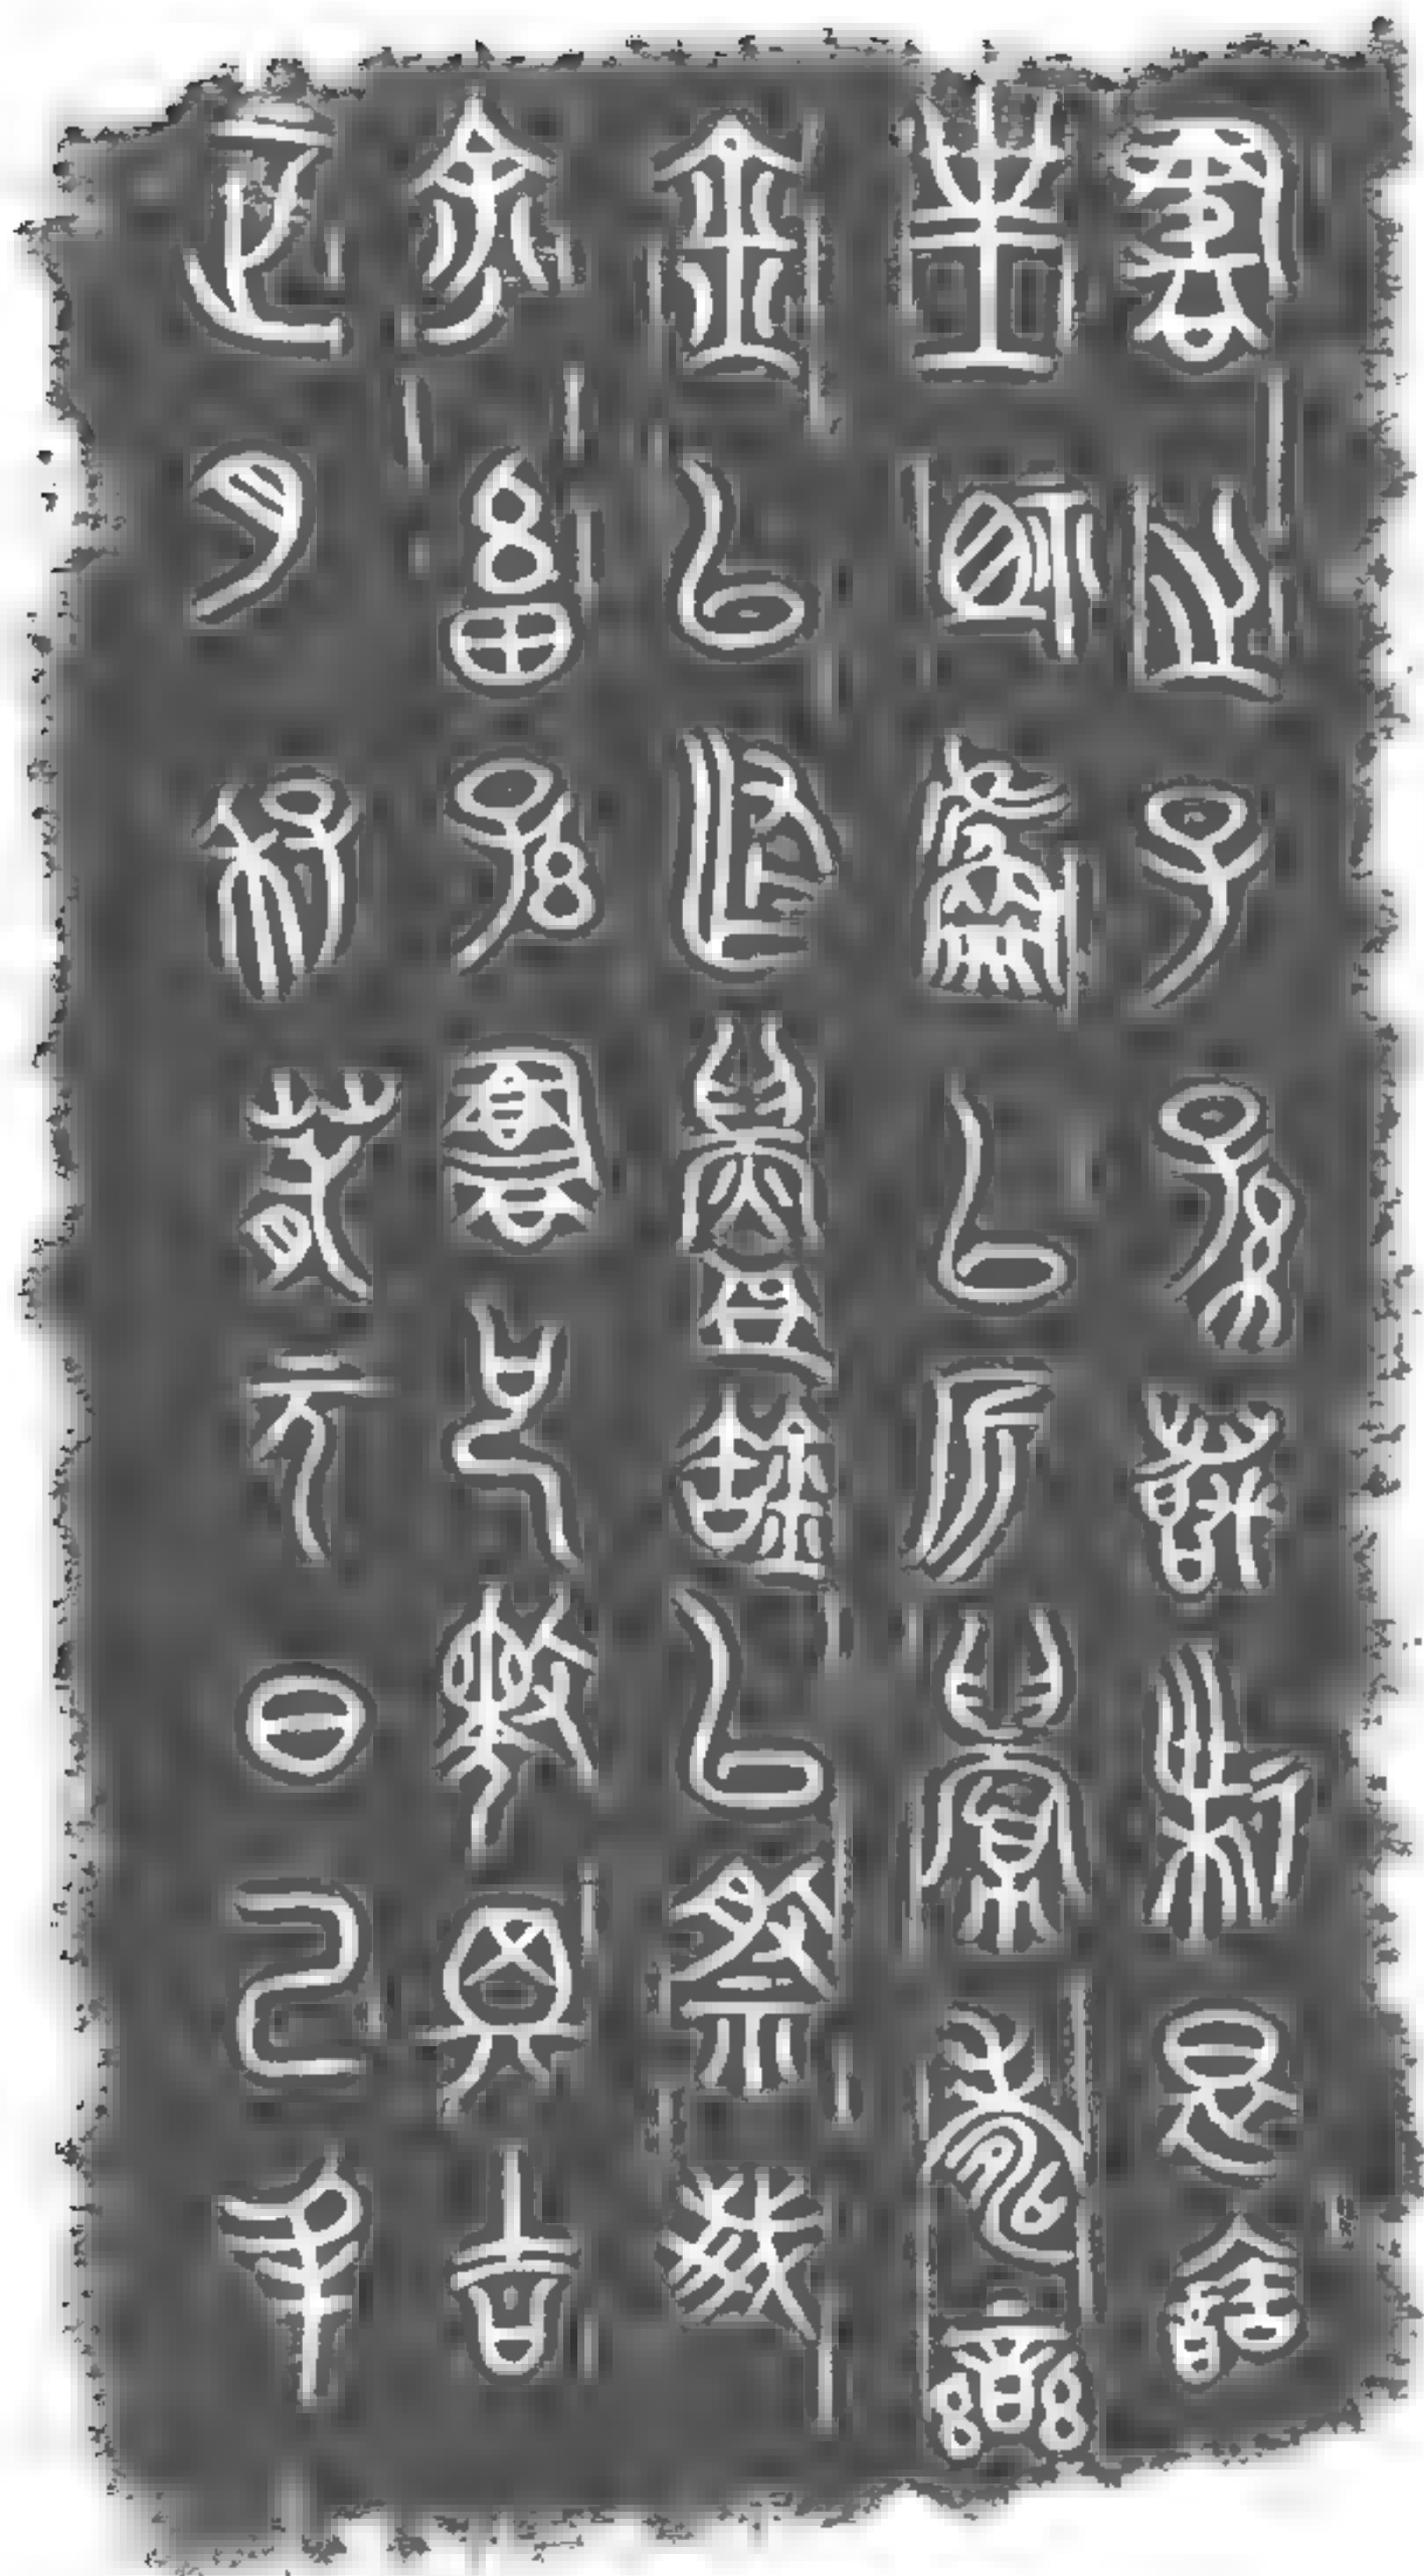 正月季春元日己丑
余畜孫書也擇其吉
金以作鑄缶以祭我
皇祖虞以祈眉壽欒
書之子孫萬世是寶